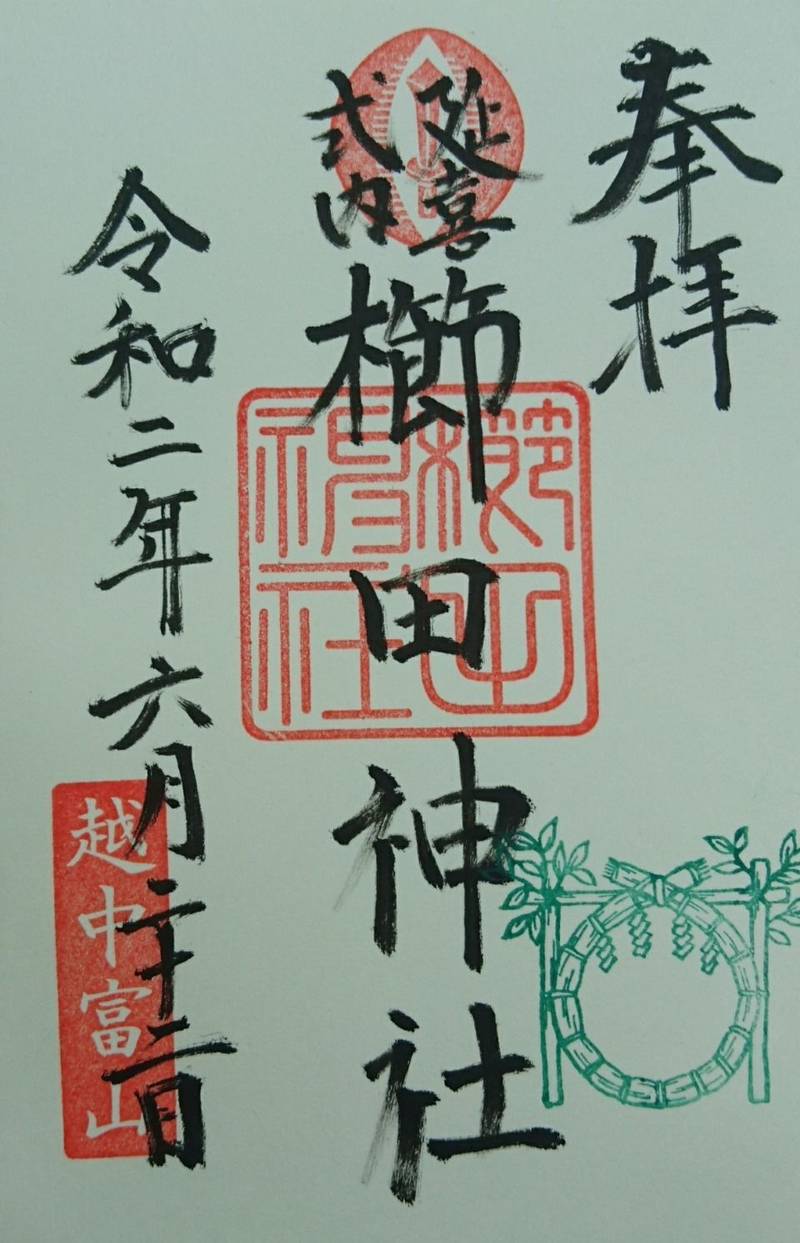 奉拝
延喜
式内
櫛田神社
櫛田
神社
令和二年六月二十二日
越中富山